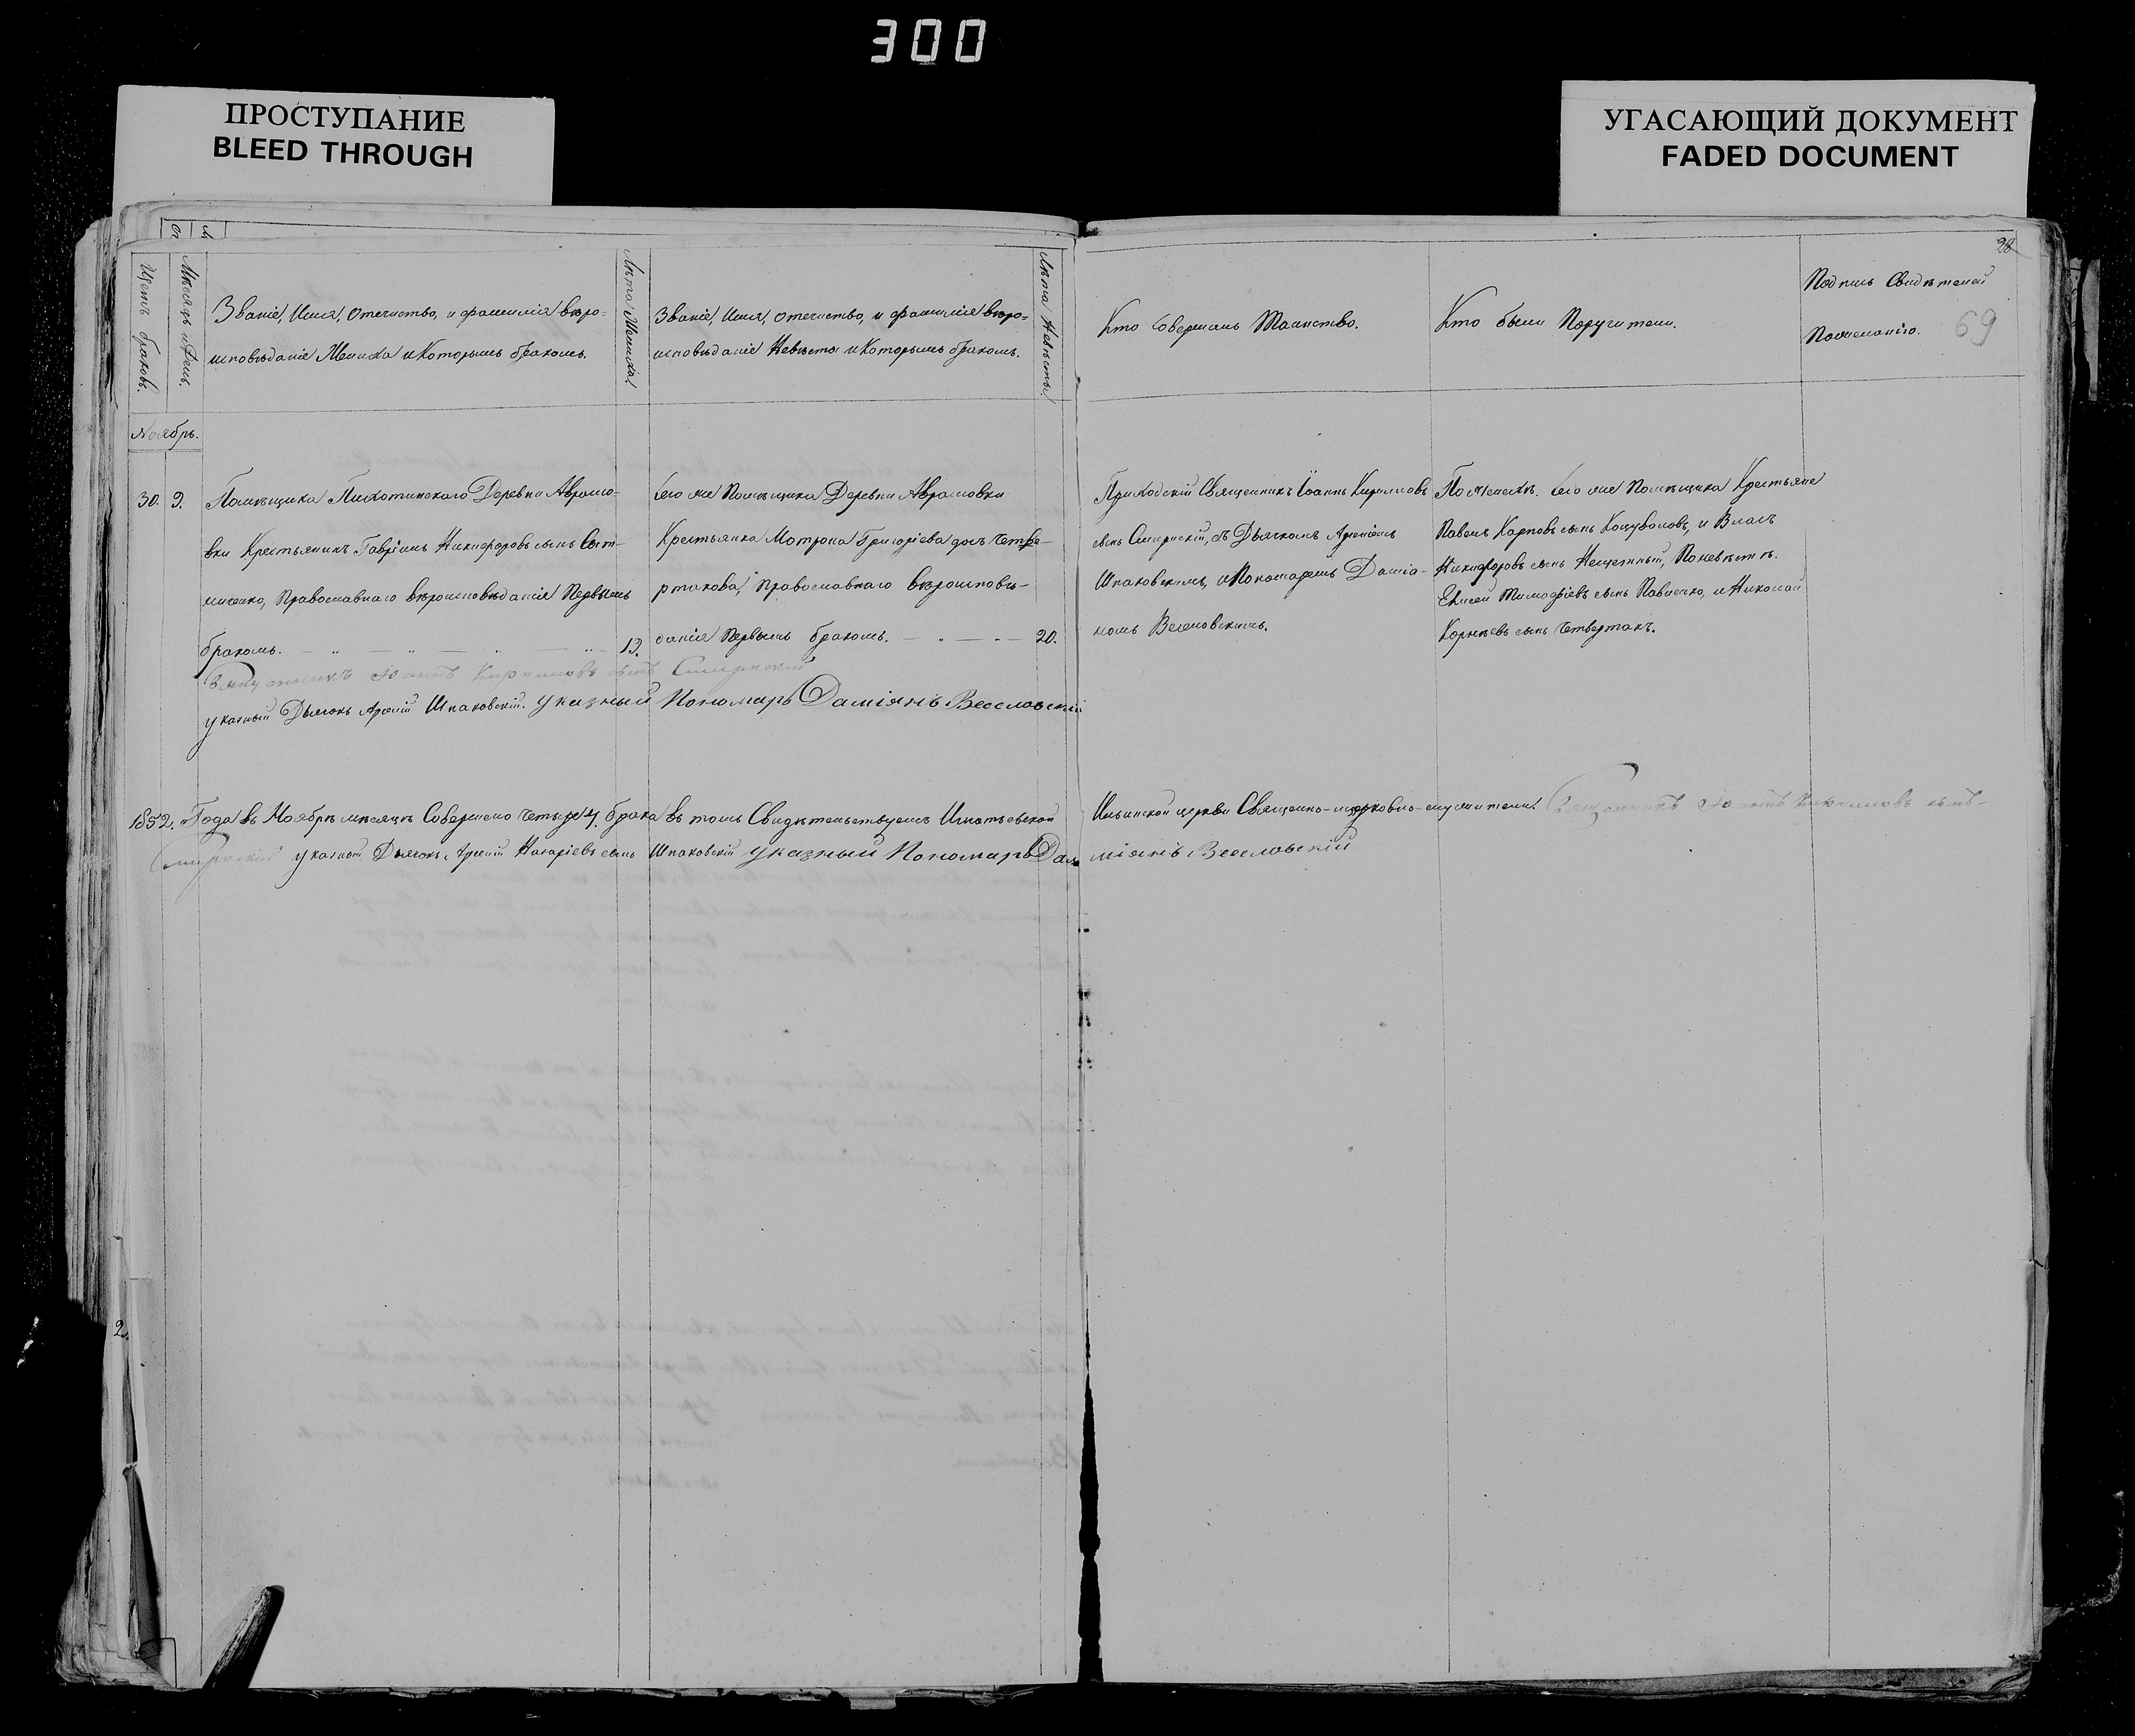 300
ПРОСТУПАНИЕ
BLEED THROUGH
УГАСАЮЩИЙ ДОКУМЕНТ
FADED DOCUMENT
28
69
Щетъ браковъ.
Мѣсяцъ и День.
Званіе, Имя, Отечество, и фамилія вѣро-
исповѣданіе Жениха и Которымъ бракомъ.
Лѣта Жениха.
Званіе, Имя, Отечество, и фамилія вѣро-
исповѣданіе Невѣсты и Которымъ бракомъ.
Лѣта Невѣсты.
Кто Совершалъ Таинство.
Кто были Поручители.
Подпись Свидѣтелей
По желанію.
Ноябрь.
30. 9.
Помѣщика Деревни Аврамо-
вки Крестьянинъ Гавріилъ Никифоровъ сынъ
Православнаго вѣроисповѣданія Первымъ
бракомъ. 19.
Его же Помѣщика Деревни Аврамовки
Крестьянка Мотрона Григоріева дочь Четве-
ртакова, Православнаго вѣроисповѣ-
данія Первымъ бракомъ. 20.
Приходскій Священникъ Іоаннъ Кириловъ
сынъ Смирнскій, съ Дьячкомъ
Шпаковскимъ, и Пономаремъ Даміа-
номъ Веселовскимъ.
По Женихѣ. Его же Помѣщика Крестьяне
Павелъ Карповъ сынъ и Власъ
Никифоровъ сынъ По невѣстѣ.
Елисей Тимофѣевъ сынъ и Николай
Корнѣевъ сынъ Четвертакъ.
Священникъ Іоаннъ Кириловъ сынъ Смирнскій
указный Дьячокъ Шпаковскій. Указный Пономарь Даміянъ Веселовскій
1852. Года въ Ноябрѣ мѣсяцѣ Совершено Четыре 4. брака въ томъ Свидѣтельствуемъ Игнатьевской
Ильинской церкви Священно-церковно-служители. Священникъ Іоаннъ Кириловъ сынъ
Смирнскій указной Дьячокъ Назаріевъ сынъ Шпаковскій Указный Пономарь Да
міянъ Веселовскій
2.